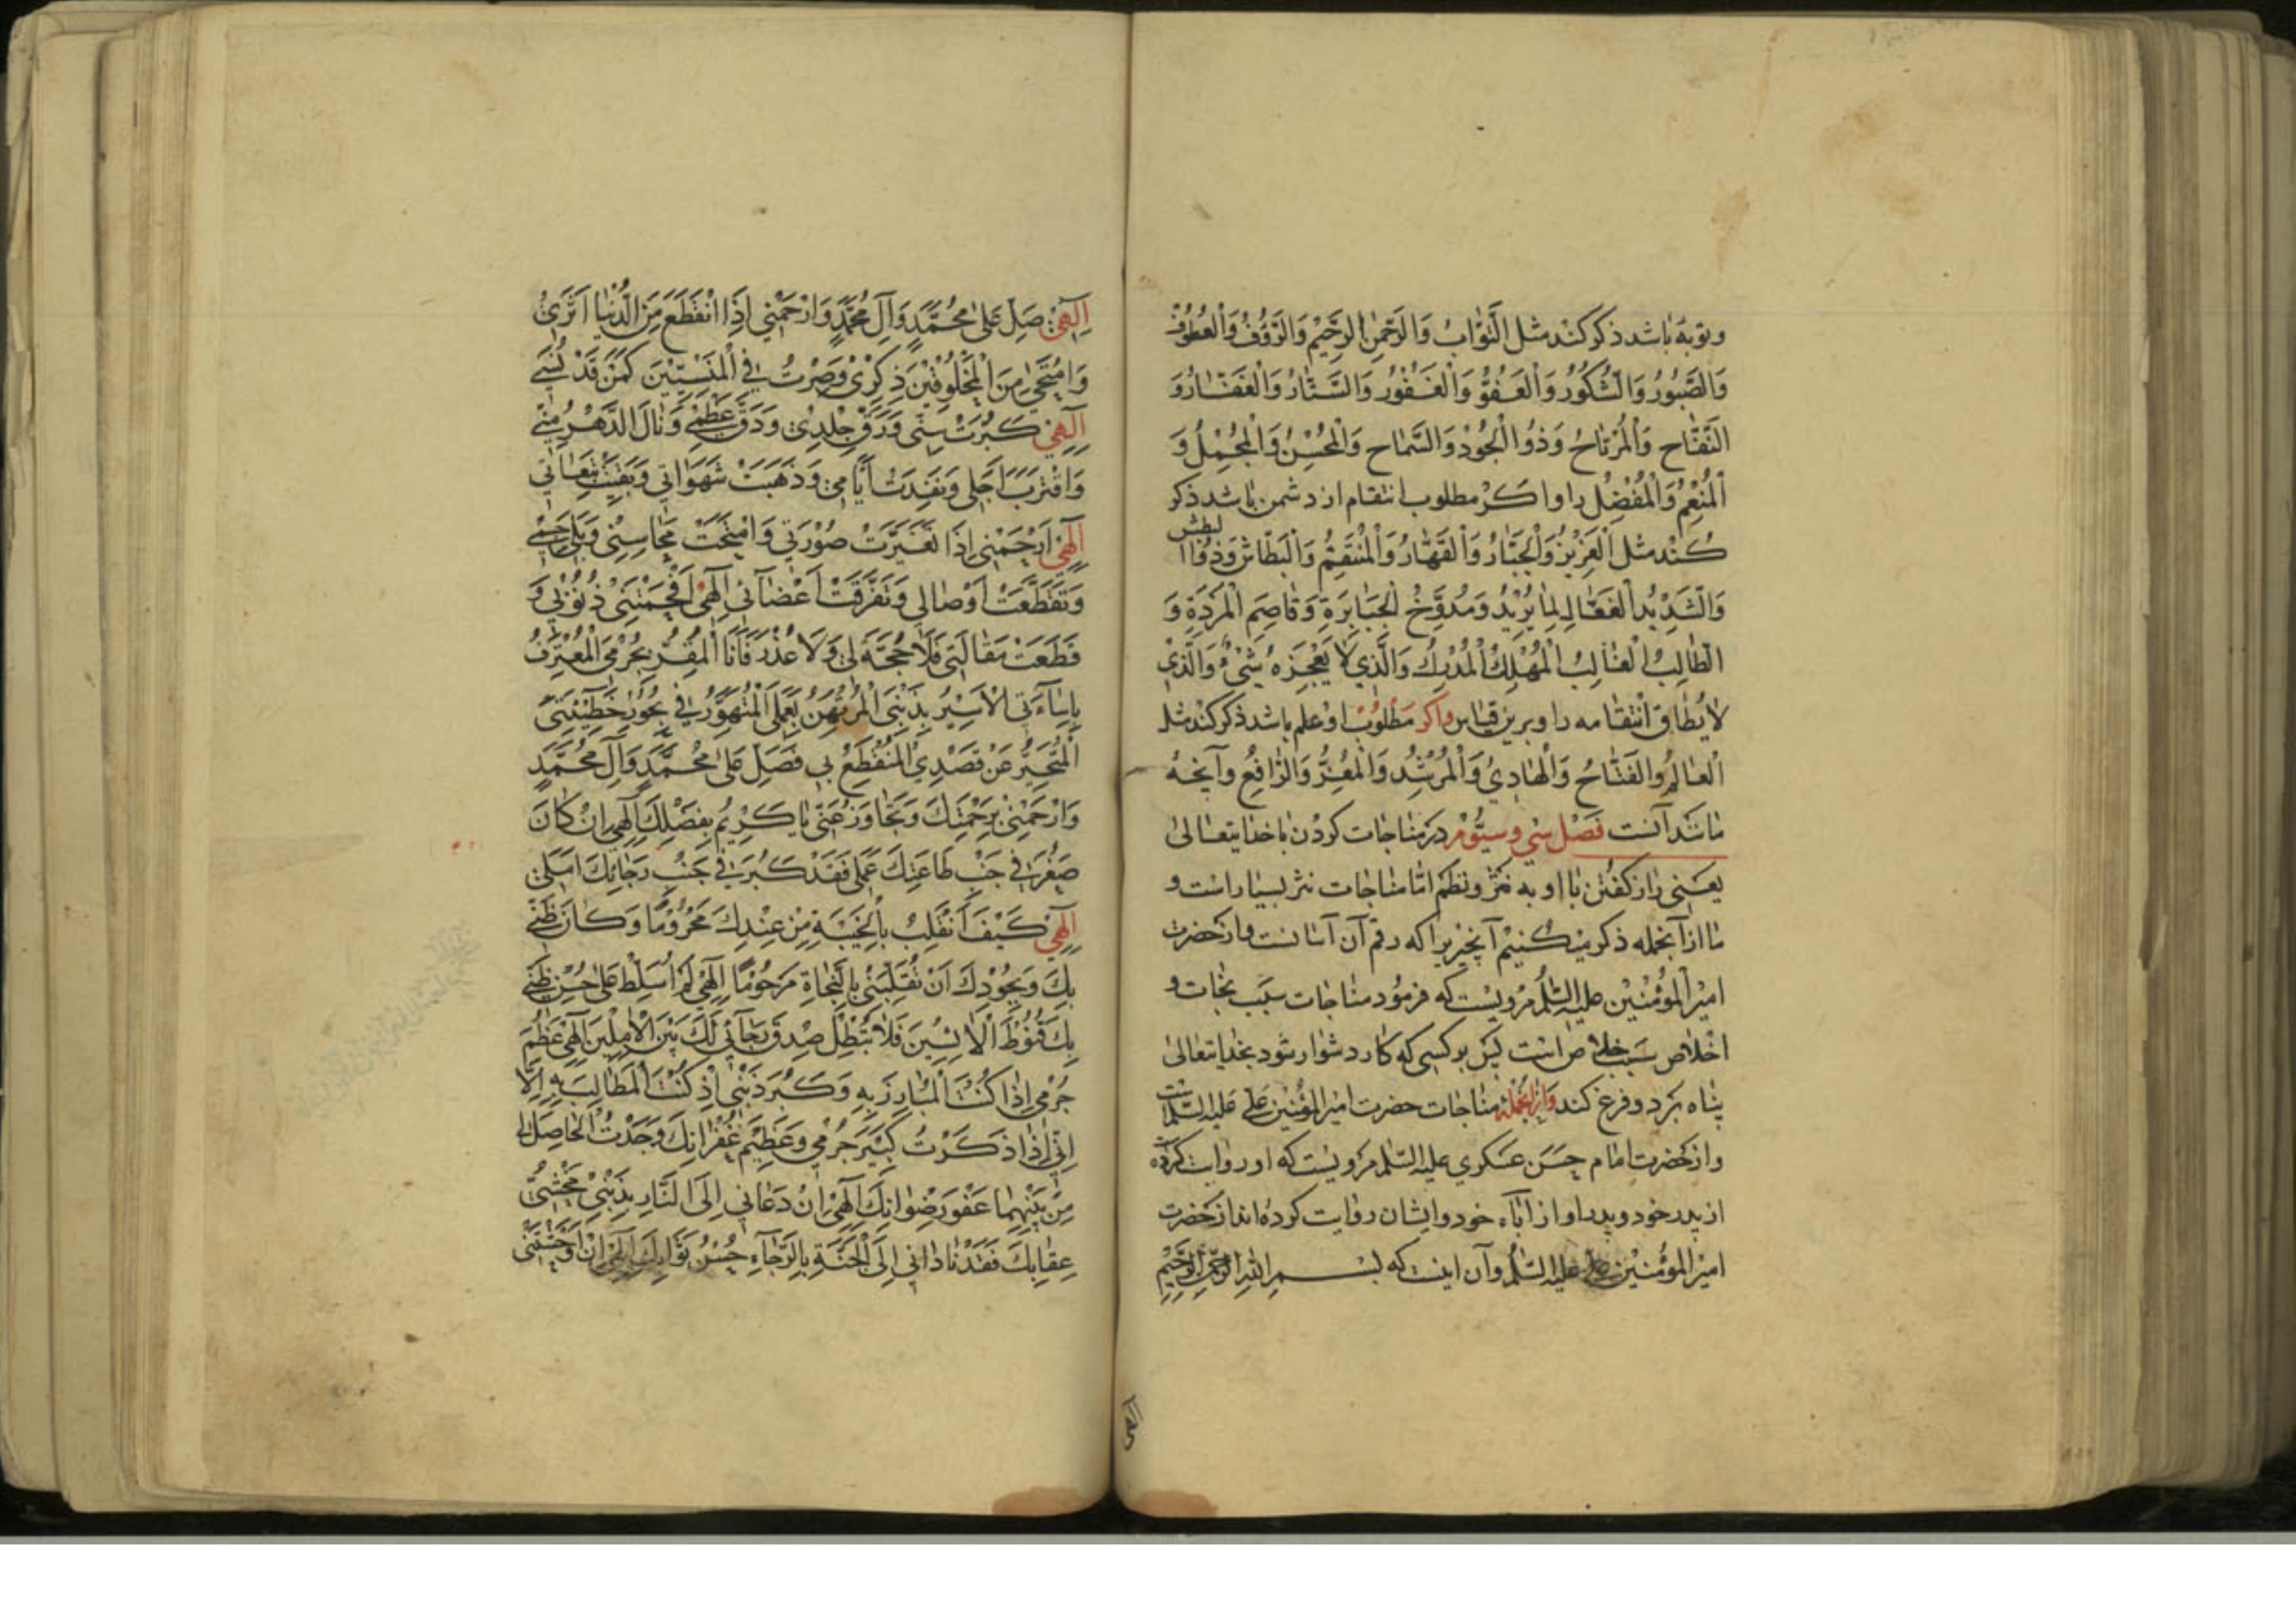 وتوبه باشد ذکر کند مثل التَّوّابُ وَالرَّحْمٰنِ الرَّحِيْمُ وَالرَّؤُفُ وَالْعَطُوْفُ
وَالصَّبُوْرُ وَالشَّكُوْرُ وَالْعَفُوُّ وَالْغَفُوْرُ وَالسَّتّارُ وَالْغَفّارُ وَ
النَّفّاح وَالْمُرْتاحُ وَذُوالْجُوْدِ وَالسَّماح وَالْمُحْسِنُ وَالْمُجْمِلُ وَ
الْمُنْعِمُ وَالْمُفْضِلُ را واکر مطلوب انتقام از دشمن باشد ذکر
کند مثل الْعَزِيْزُ وَالْجَبّارُ وَالْقَهّارُ وَالْمُنْتَقِمُ وَالْبَطّاشُ وَذُوْا لبطش
وَالشَّدِيْدُ الْفَعّالِ لِما يُرِيْدُ وَمُدَوِّخُ الْجَبابِرَةِ وَقاصِمِ الْمَرَدَةِ وَ
الطّالِبُ الْغالِبُ الْمُهْلِكُ الْمُدْرِكُ وَالَّذِي لا يُعْجِزُهُ شَيْءٌ وَالَّذِيْ
لا يُطاقُ انْتِقامه را وبرین قیاس واکر مَطْلوُب او علم باشد ذکر کند مثل
الْعالِمُ وَالفَتّاحُ وَالْهادِيُ وَالْمُرْشِدُ وَالْمُعِزُّ وَالرّافِعُ وآنچه
مانند آنست فَصْل سی وسیّوُم در مناجات کردن با خدایتعالیٰ
یعنی راز کفتن با او به نثر ونظم امّا مناجات نثر بسیار است و
ما از آنجمله ذکر میکنیم آنچیزیرا که رقم آن آسانست واز حضرت
امیرالْمؤْمنین علیه السّلم مرویست که فرمود مناجات سبب نجات و
اخلاص سبب خلاص است پس بر کسی که کار دشوار شود بخدایتعالی
پناه برد وفزع کند وازآنجمله مناجات حضرت امیرالمؤمنین علی علیه السّلم است
واز حضرت امام حسن عسکری علیه السّلم مرویست که او روایت کرده
از پدر خود وپدر او از آباء خود وایشان روایت کرده اند از حضرت
امیرالمؤمنین علی علیه السّلم وآن اینست که بسم الله الرحمن الرحیم
اِلٓهِيْ صَلِّ عَلىٰ مُحَمَّدٍ وَآلِ مُحَمَّدٍ وَارْحَمْنِي اِذَا انْقَطَعَ مِنَ الدُّنْيا اَثَرِيْ
وَامْتَحىٰ مِنَ الْمَخْلُوقِيْنَ ذِكْرِيْ وَصِرْتُ فِي الْمَنْسِيِّيْنَ كَمَنْ قَدْ نُسِيَ
اِلٓهِيْ كَبُرَتْ سِنِّي وَرَقَّ جِلْدِيْ وَدَقَّ عَظْمِيْ وَنالَ الدَّهْرُ مِنِّيْ
وَاقْتَرَبَ اَجَلِي وَنَفِدَتْ اَيّامِيْ وَذَهَبَتْ شَهَوَاتِي وَبَقِيَتْ تَبِعاتِي
اِلٓهِيْ اَرْحَمْنِي اِذَا تَغَيَّرَتْ صُوْرَتِي وَامْتَحَتْ مَحاسِنِيْ وَبَلِيَ جِسْمِيْ
وَتَقَطَّعَتْ اَوْصالِي وَتَفَرَّقَتْ اَعْضآئِي اِلٓهِي اَفْحَمَتْنِي ذُنُوْبِي وَ
قَطَعَتْ مَقالَتِي فَلا حُجَّةَ لِي وَلا عُذْرَ فَاَنَا الْمُقِرُّ بِجُرْمِي الْمُعْتَرِفُ
بِاِسآءَتِي الْاَسِيْرُ بِذَنْبِي الْمُرْتَهِنُ بِعَمَلِي الْمُتَهَوِّرُ فِي بُحُوْرِ خَطِيْئَتِي
الْمُتَحَيِّرُ عَنْ قَصْدِي الْمُنْقَطِعُ بِي فَصَلِّ عَلىٰ مُحَمَّدٍ وَآلِ مُحَمَّدٍ
وَارْحَمْنِيْ بِرَحْمَتِكَ وَتَجاوَزْ عَنِّي يا كَرِيْمُ بِفَضْلِكَ اِلٓهِي اِنْ كانَ
صَغُرَ فِي جَنْبِ طاعَتِكَ عَمَلِي فَقَدْ كَبُرَ فِي جَنْبِ رَجائِكَ اَمَلِي
اِلٓهِيْ كَيْفَ اَنْقَلِبُ بِالْخَيْبَةِ مِنْ عِنْدِكَ مَحْرُوْمًا وَكانَ ظَنِّي
بِكَ وَبِجُوْدِكَ اَنْ تُقَلِّبَنِي بِالنَّجاةِ مَرْحُوْمًا اِلٓهِي لَمْ اُسَلِّطْ عَلىٰ حُسْنِ ظَنِّي
بِكَ قُنُوْطَ الْاٰيِسِيْنَ فَلا تُبْطِلْ صِدْقَ رَجآئِي لَكَ بَيْنَ الْاٰمِلِيْنَ اِلٓهِي عَظُمَ
جُرْمِي اِذا كُنْتَ الْمُبارَزَ بِهِ وَكَبُرَ ذَنْبِي اِذْ كُنْتَ الْمُطالِبَ بِهِ اِلّا
اِنِّي اِذا ذَكَرْتُ كَبِيْرَ جُرْمِي وَعَظِيْمَ غُفْرانِكَ وَجَدْتُ الْحاصِلَ لِي
مِنْ بَيْنِهِما عَفْوَ رِضْوانِكَ اِلٓهِي اِنْ دَعانِي اِلَى النّارِ بِذَنْبِيْ مَخْشِيُّ
عِقابِكَ فَقَدْ نادانِي اِلَى الْجَنَّةِ بِالرَّجآءِ حُسْنُ ثَوابِكَ اِلٓهِي اِنْ اَوْحَشَتْنِي